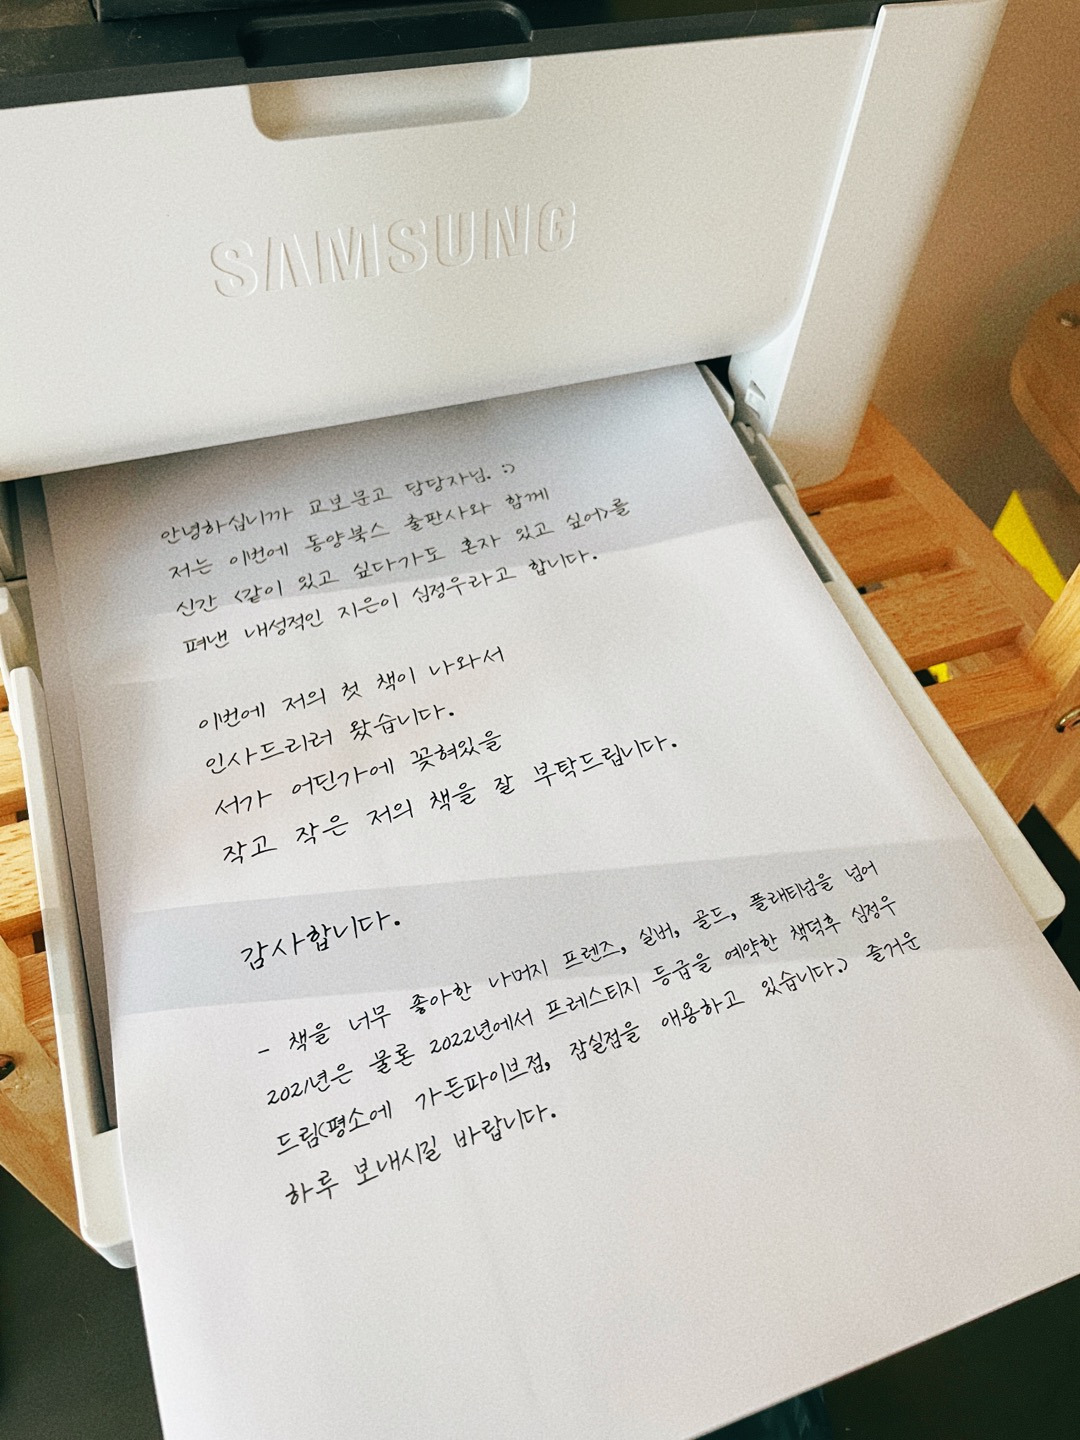 SAMSUNG
안녕하십니까 교보문고 담당자님. :)
저는 이번에 동양북스 출판사와 함께
신간 <같이 있고 싶다가도 혼자 있고 싶어>를
펴낸 내성적인 지은이 심정우라고 합니다.
이번에 저의 첫 책이 나와서
인사드리러 왔습니다.
서가 어딘가에 꽂혀있을
작고 작은 저의 책을 잘 부탁드립니다.
감사합니다.
- 책을 너무 좋아한 나머지 프렌즈, 실버, 골드, 플래티넘을 넘어
2021년은 물론 2022년에서 프레스티지 등급을 예약한 책덕후 심정우
드림(평소에 가든파이브점, 잠실점을 애용하고 있습니다.) 즐거운
하루 보내시길 바랍니다.